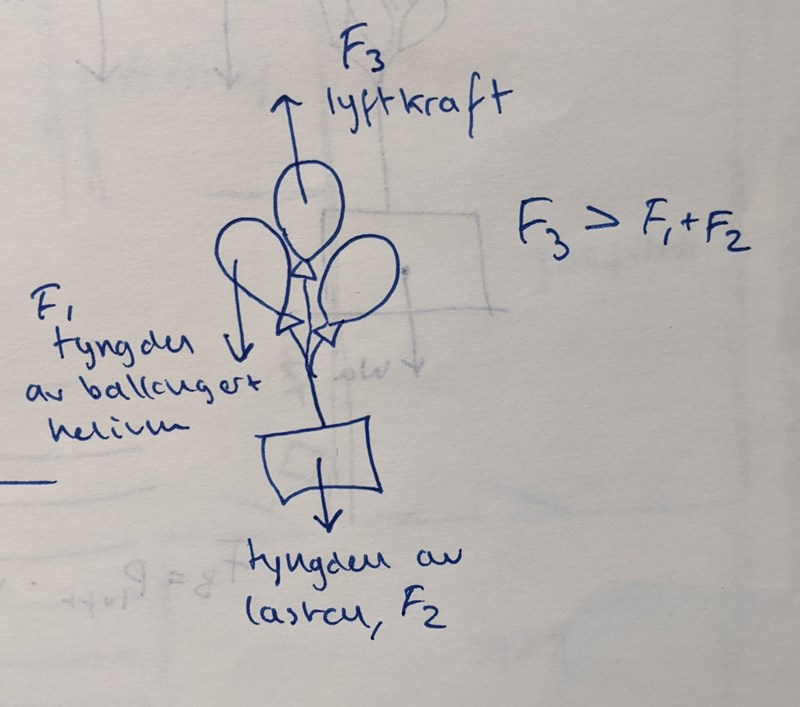 F3
lyftkraft
F3 > F1+F2
F1
tyngden
av ballonger+
helium
tyngden av
lasten, F2